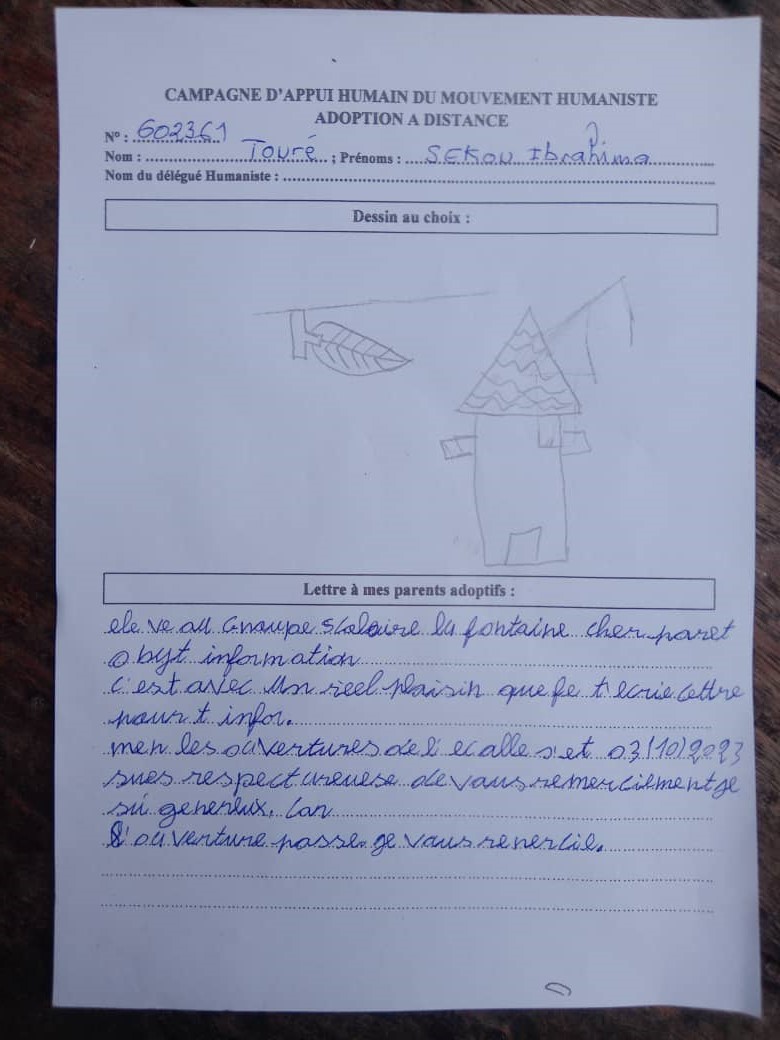 CAMPAGNE D'APPUI HUMAIN DU MOUVEMENT HUMANISTE
ADOPTION A DISTANCE
N° : 602361
Nom : Touré ; Prénoms : SEKOU Ibrahima
Nom du délégué Humaniste :
Dessin au choix :
Lettre à mes parents adoptifs :
ele ve au Groupe scolaire la fontaine cher paret
objt information
c'est avec un reel plaisir que je t ecrie cettre
pour t infor.
mer les ouvertures de l' ecalle s'et 03/10/2023
sues respectureuese de vous remerciement je
sui genereux. Car
l'ouverture passe. ge vous renercie.